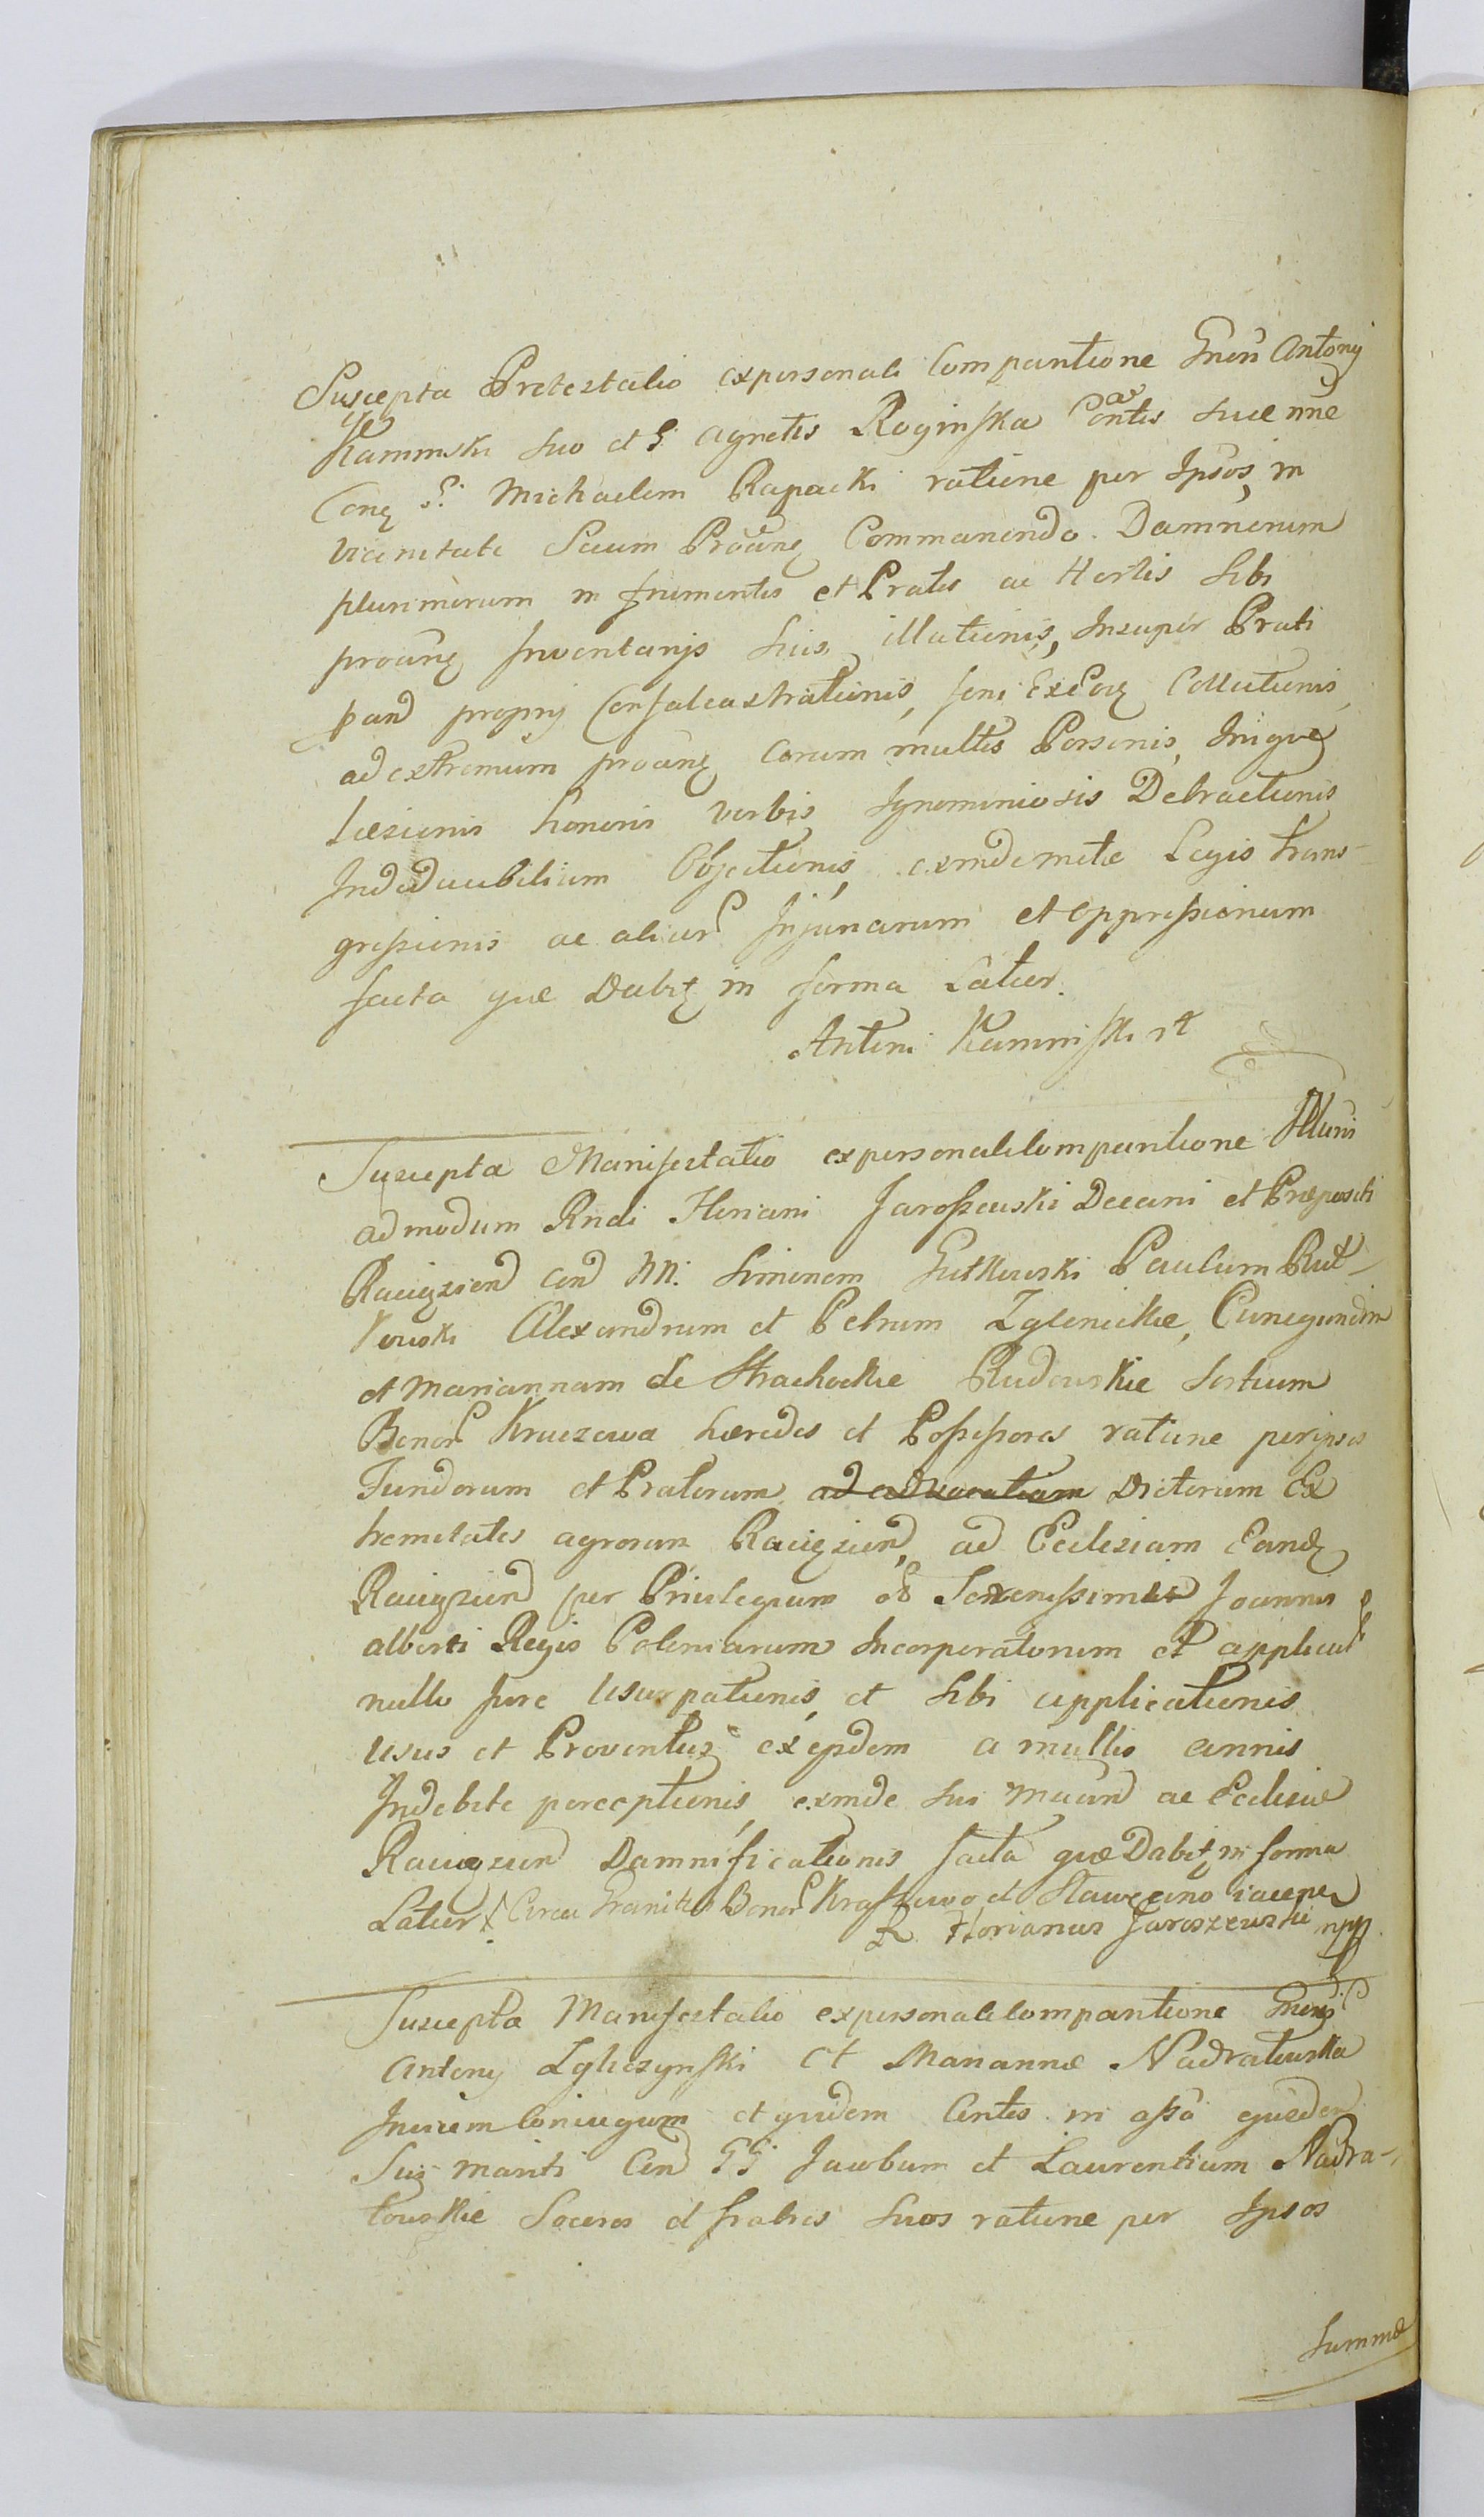 Suscepta Protestatio expersonali Compantione Gnen Antonij
Kaminski suo et G Agnetis Roginska Contis suae nne
Conq G: Michaelem Rapacki ratione per Ipsos in
vicinitate Secum Proang Commanendo. Damnorum
plurimorum in frumentis et Pratis ac Hortis Sibi
proang Inventarijs Suis illationis, Insuper Prati
pand proprij Confalcastrationis, feni ExEoq Collectionis,
ad extremum proang Coram multis Personis, Inigveq
laesionis honoris verbis Ignominiosis Detractionis
Indeducibilium Objectionis, exindemetae Legis trans-
gressionis ac alior Injuriarum et oppressionum
facta quae Dabit in forma Latior.
Antoni Kaminski rt
Suscepta Manifestatio expersonalicompantione Illuris
admodum Rndi Floriani Jaroszewski Decani et Praepositi
Raciązien con NN: Simonem Gutkowski Paulum Rut-
kowski Alexandrum et Petrum Zglenickie, Cunegundem
et Mariannam de Strachockie Rudowskie Sortium
Bonor Kruszewa haeredes et Possessores ratione peripsos
Fundorum et Pratorum ad advocatiam Dictorum Ex
tremitates agrorum Raciązien, ad Ecclesiam Eand
Raciązien per Privilegium ol Serenissimi Joannis
alberti Regis Poloniarum Incorporatorum et applicat
nullo Jure Usurpationis, et Sibi applicationis
usus et Proventus exijsdem a multis annis
Indebite perceptionis, exinde sui Mcand ac Ecclesiae
Raciązien Damnificationis facta quae Dabit in forma
Latior Circa Granities Bonor Kraszewo et Sławęcino iacenten
X Florianus Jaroszewski mpp
Suscepta Manifestatio expersonalicompantione Gneror
Antonij Zgliczynski et Mariannae Nadratowska
Invicem Coniugum et quidem Contis in assa ejusdem
Sui mariti Con GG Jacobum et Laurentium Nadra-
towskie Soceros et fratres Suos ratione per Ipsos
Summae